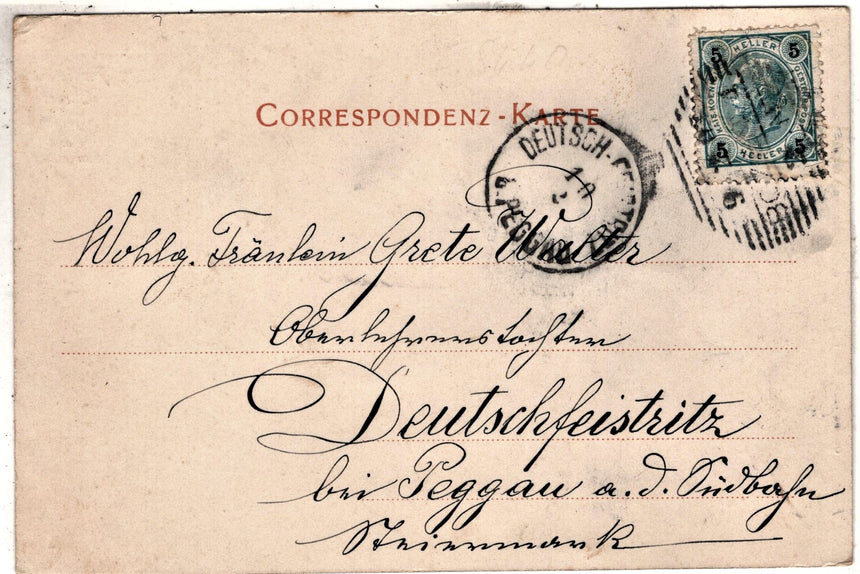 5 HELLER 5
5 HELLER 5
CORRESPONDENZ - KARTE
DEUTSCH-
10
PEGGAU
Wohlg. Fräulein Grete Walter
Oberlehrerstochter
Deutschfeistritz
bei Peggau a. d. Südbahn
Steiermark